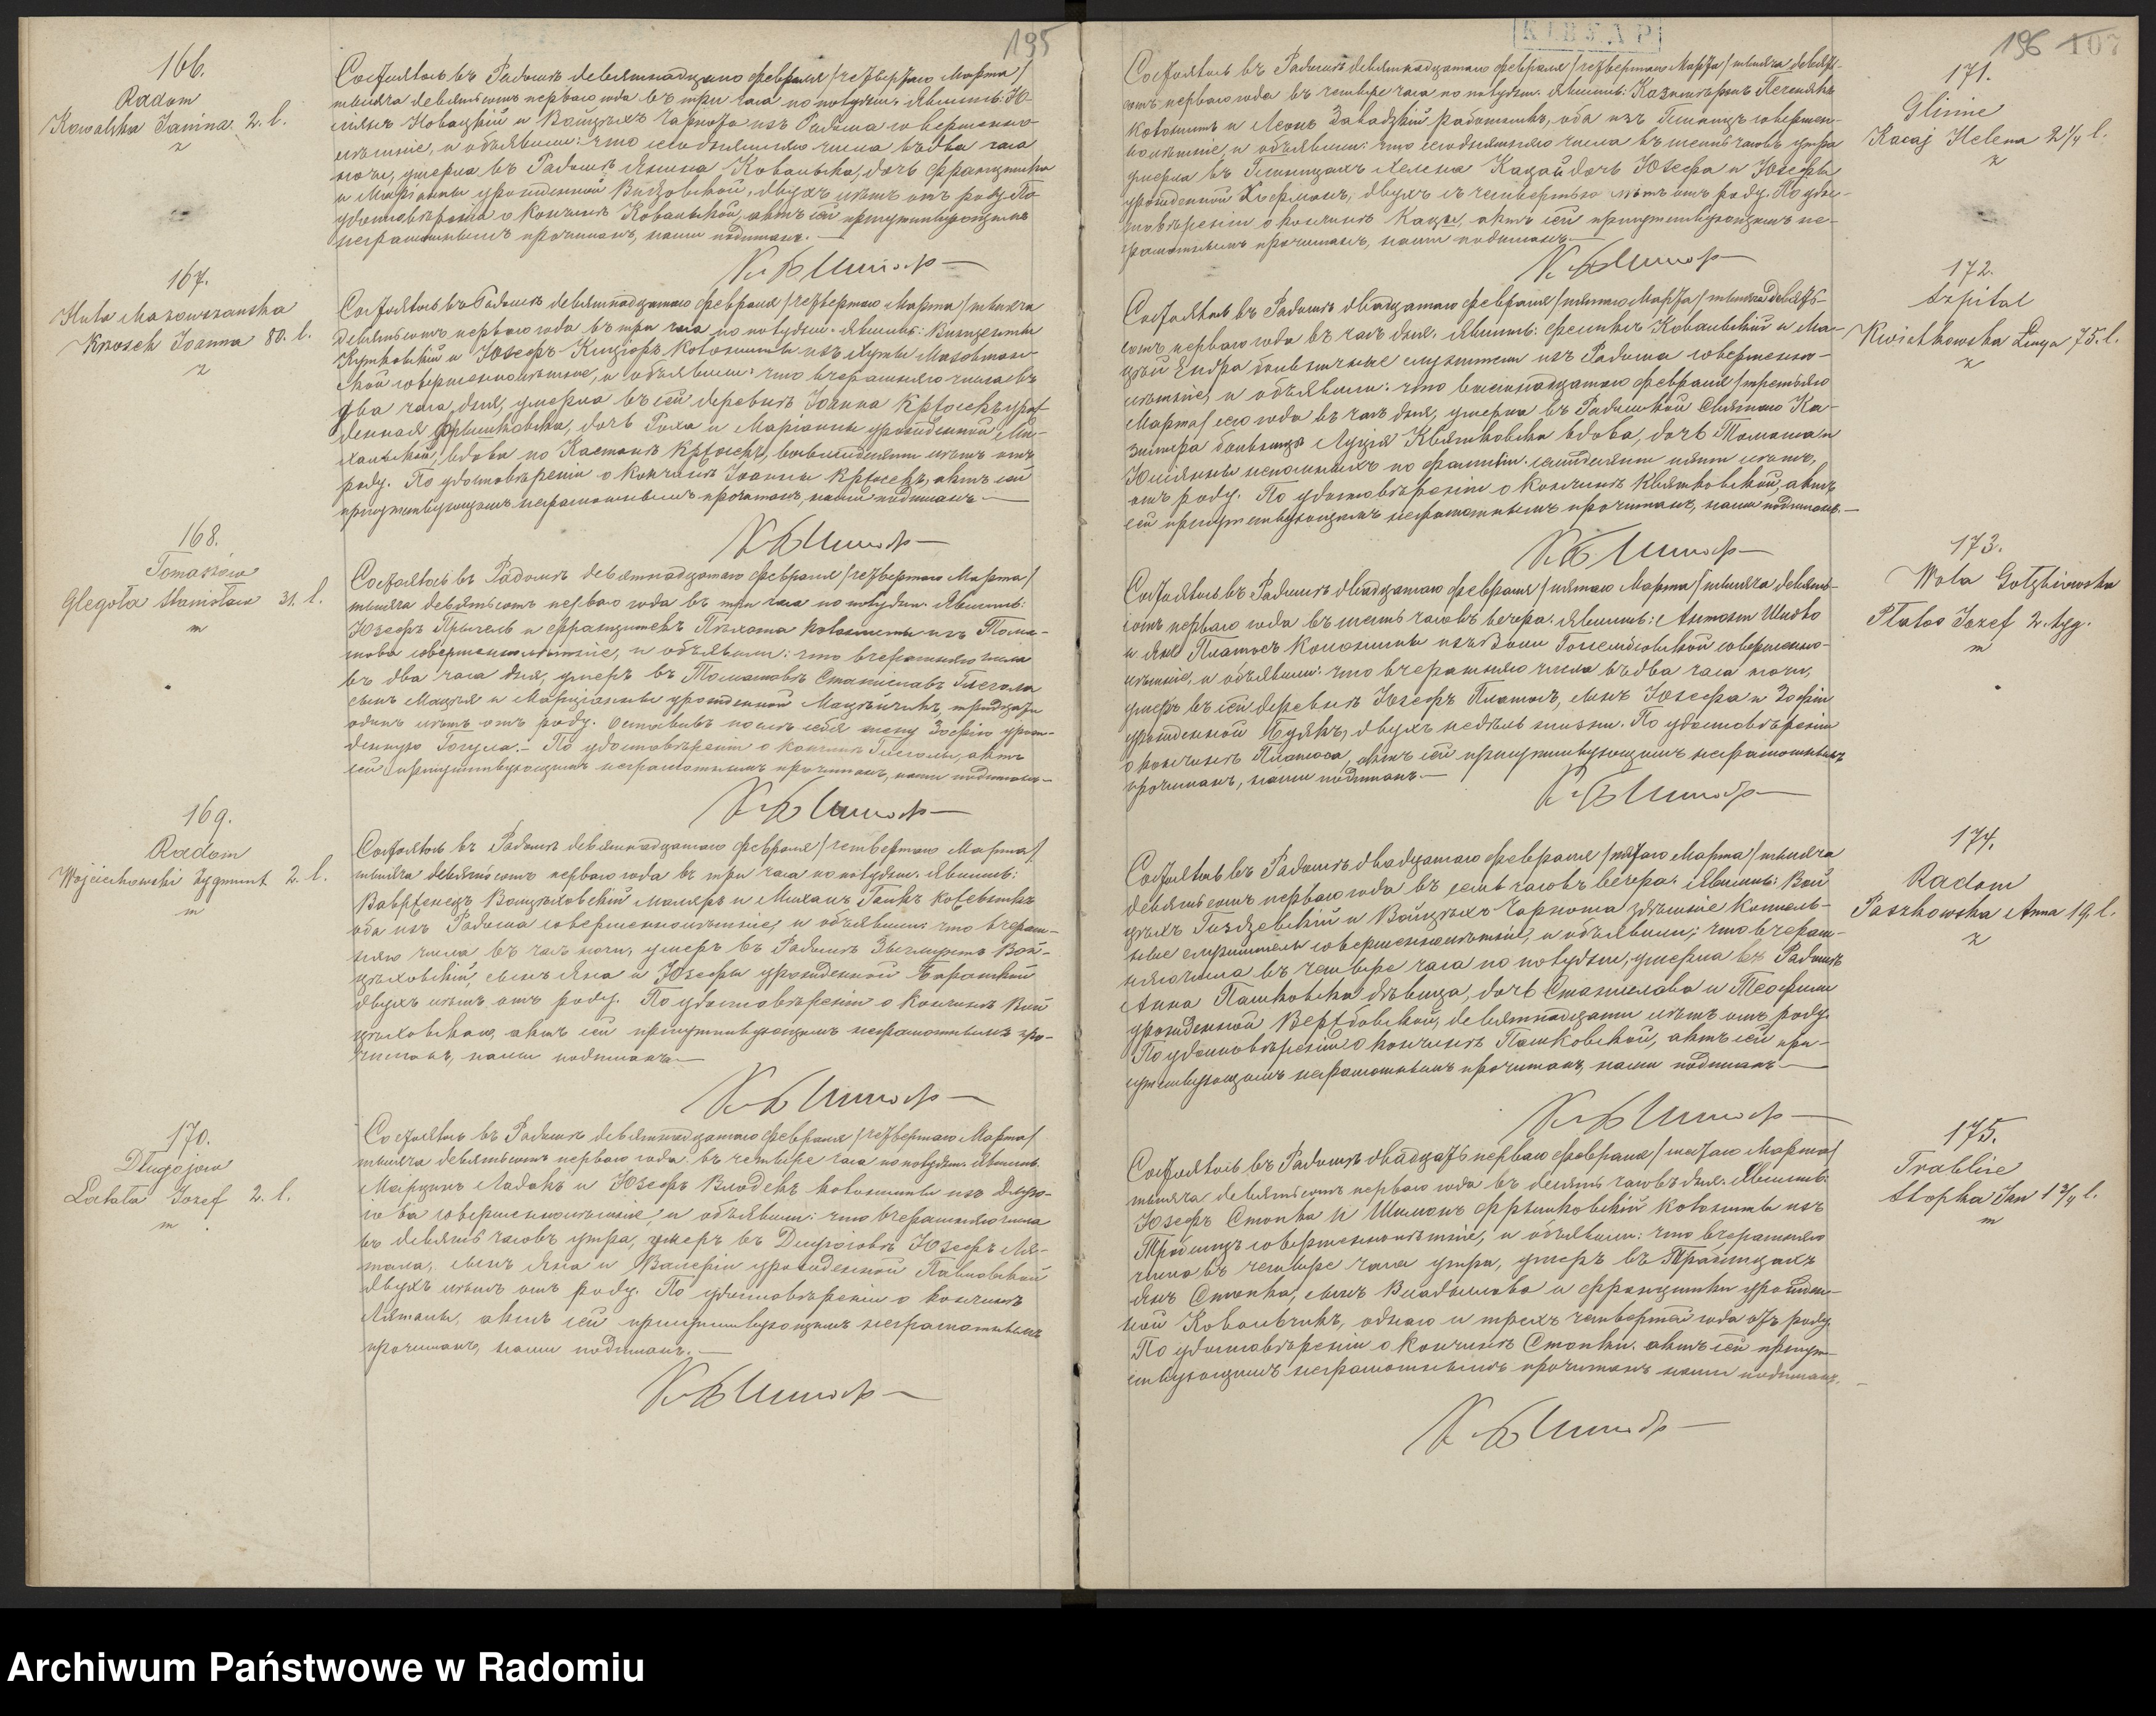 195
166.
Radom
Kowalska Janina 2. l.
z
Состоялось въ Радомѣ девятнадцатаго февраля /четвертаго Марта/
тысяча девятьсотъ перваго года въ три часа по полудни. Явились: Ю-
ліянъ Новацкій и Войцѣхъ Чарнота изъ Радома совершенно-
лѣтніе, и объявили: что сегодняшняго числа въ два часа
ночи, умерла въ Радомѣ Янина Ковальска, дочь Францишка
и Маріанны урожденной двухъ лѣтъ отъ роду. По
удостовѣреніи о кончинѣ Ковальской, актъ сей присутствующимъ
неграмотнымъ прочитанъ, нами подписанъ.
167.
Huta Mazowszanska
Knosek Joanna 80. l.
z
Состоялось въ Радомѣ девятнадцатаго февраля /четвертаго Марта/ тысяча
девятьсотъ перваго года въ три часа по полудни. Явились: Винцентый
и Юзефъ колонисты изъ Гуты Мазовшан-
ской совершеннолѣтніе, и объявили: что вчерашняго числа въ
два часа дня, умерла въ сей деревнѣ Іоанна урож-
денная дочь Роха и Маріанны урожденной Ми-
хальской, вдова по восьмидесяти лѣтъ отъ
роду. По удостовѣреніи о кончинѣ Іоанны актъ сей
присутствующимъ неграмотнымъ прочитанъ, нами подписанъ.
168.
Tomaszow
Glegoła Stanisław 31. l.
m
Состоялось въ Радомѣ девятнадцатаго февраля /четвертаго Марта/
тысяча девятьсотъ перваго года въ три часа по полудни. Явились:
Юзефъ и Францишекъ колонисты изъ Тома-
шова совершеннолѣтніе, и объявили: что вчерашняго числа
въ два часа дня, умеръ въ Томашовѣ Станиславъ Глегола
сынъ Мацея и Маріанны урожденной тридцать
одинъ лѣтъ отъ роду. Оставивъ послѣ себя жену Зофію урож-
денную По удостовѣреніи о кончинѣ Глеголы, актъ
сей присутствующимъ неграмотнымъ прочитанъ, нами подписанъ
169.
Radom
Wojciechowski Zygmunt 2. l.
m
Состоялось въ Радомѣ девятнадцатаго февраля /четвертаго Марта/
тысяча девятьсотъ перваго года въ три часа по полудни. Явились:
Вавржинецъ Войцѣховскій маляръ и Михалъ
оба изъ Радома совершеннолѣтніе, и объявили: что вчераш-
няго числа въ часъ ночи, умеръ въ Радомѣ Зыгмунтъ Вой-
цѣховскій, сынъ Яна и Юзефы урожденной
двухъ лѣтъ отъ роду. По удостовѣреніи о кончинѣ Вой
цѣховскаго, актъ сей присутствующимъ неграмотнымъ про-
читанъ, нами подписанъ.
170.
Długojow
Latała Jozef 2. l.
m
Состоялось въ Радомѣ девятнадцатаго февраля /четвертаго Марта/
тысяча девятьсотъ перваго года въ четыре часа по полудни. Явились:
Марцинъ и Юзефъ колонисты изъ Длуго-
іова совершеннолѣтніе, и объявили: что вчерашняго числа
въ девять часовъ утра, умеръ въ Длугоіовѣ Юзефъ Ля-
тала, сынъ Яна и Валеріи урожденной Павловской
двухъ лѣтъ отъ роду. По удостовѣреніи о кончинѣ
Ляталы, актъ сей присутствующимъ неграмотнымъ
прочитанъ, нами подписанъ.
196 107
171.
Glinice
Kacaj Helena 2 1/4 l.
z
Состоялось въ Радомѣ девятнадцатаго февраля /четвертаго Марта/ тысяча девять-
сотъ перваго года въ четыре часа по полудни. Явились: Казимѣржъ
колонистъ и Леонъ Завадзкій работникъ, оба изъ Глиницъ совершен-
нолѣтніе, и объявили: что сегодняшняго числа въ часовъ утра
умерла въ Глиницахъ Хелена Кацай дочь Юзефа и Юзефы
урожденной двухъ съ четвертью лѣтъ отъ роду. По удос-
товѣреніи о кончинѣ актъ сей присутствующимъ не-
грамотнымъ прочитанъ, нами подписанъ.
172.
Szpital
Kwiatkowska Łucya 75. l.
z
Состоялось въ Радомѣ двадцатаго февраля /пятаго Марта/ тысяча девять-
сотъ перваго года въ часъ дня. Явились: Феликсъ Ковальскій и Ма-
цѣй Ендра больничные служители изъ Радома совершенно-
лѣтніе, и объявили: что восемнадцатаго февраля /третьяго
Марта/ сего года въ часъ дня, умерла въ Радомской Святаго Ка-
зимера больницѣ Луція Квятковска вдова, дочь Томаша и
Юліянны неизвѣстныхъ по фамиліи семидесяти пяти лѣтъ,
отъ роду. По удостовѣреніи о кончинѣ Квятковской, актъ
сей присутствующимъ неграмотнымъ прочитанъ, нами подписанъ.
173.
Wola Gołębiowska
Płatos Jozef 2. tyg.
m
Состоялось въ Радомѣ двадцатаго февраля /пятаго Марта/ тысяча девять-
сотъ перваго года въ шесть часовъ вечера. Явились: Антони
и Янъ Платосъ колонисты изъ Воли Голембіовской совершенно-
лѣтніе, и объявили: что вчерашняго числа въ два часа ночи,
умеръ въ сей деревнѣ Юзефъ Платосъ, сынъ Юзефа и Зофіи
урожденной двухъ недѣль жизни. По удостовѣреніи
о кончинѣ Платоса, актъ сей присутствующимъ неграмотнымъ
прочитанъ, нами подписанъ.
174.
Radom
Paszkowska Anna 19. l.
z
Состоялось въ Радомѣ двадцатаго февраля /пятаго Марта/ тысяча
девятьсотъ перваго года въ семь часовъ вечера. Явились: Вой
цѣхъ и Войцѣхъ Чарнота здѣшніе костель-
ные служители совершеннолѣтніе, и объявили; что вчераш-
няго числа въ четыре часа по полудни, умерла въ Радомѣ
Анна Пашковска дѣвица, дочь Станислава и Теофили
урожденной девятнадцати лѣтъ отъ роду.
По удостовѣреніи о кончинѣ Пашковской, актъ сей при-
сутствующимъ неграмотнымъ прочитанъ, нами подписанъ.
175.
Trablice
Stopka Jan 1 3/4 l.
m
Состоялось въ Радомѣ двадцать перваго февраля /шестаго Марта/
тысяча девятьсотъ перваго года въ десять часовъ дня. Явились:
Юзефъ Стопка и Шимонъ колонисты изъ
Траблицъ совершеннолѣтніе, и объявили: что вчерашняго
числа въ четыре часа утра, умеръ въ Траблицахъ
Янъ Стопка, сынъ Владыслава и Францишки урожден-
ной Ковальчикъ, одного и трехъ четвертей года отъ роду.
По удостовѣреніи о кончинѣ Стопки. актъ сей присут-
ствующимъ неграмотнымъ прочитанъ нами подписанъ.
Archiwum Państwowe w Radomiu